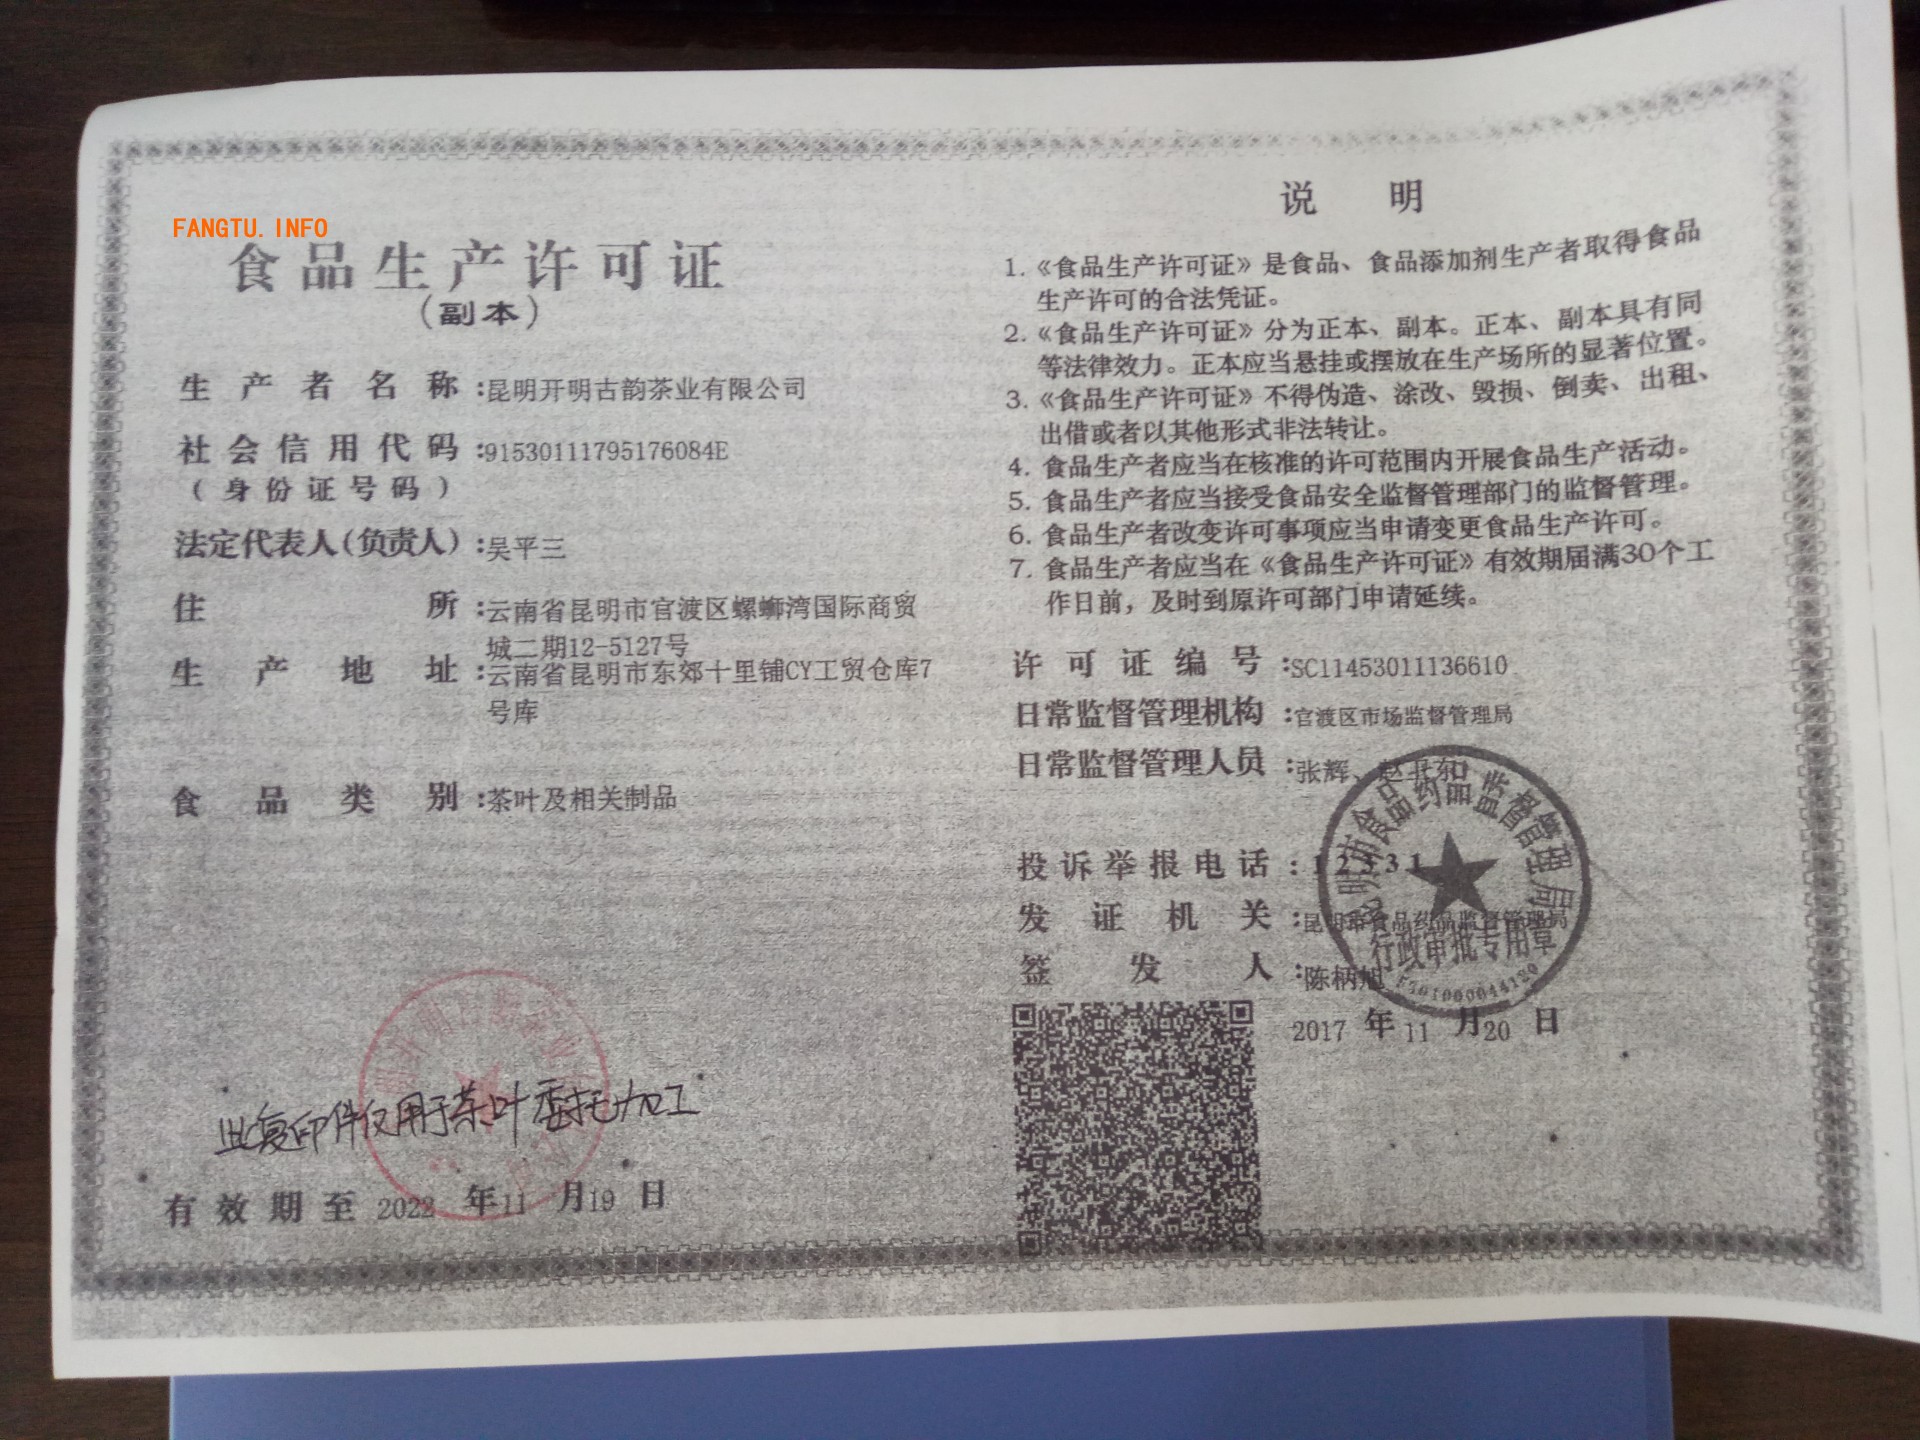 FANGTU.INFO
食品生产许可证
(副本)
生产者名称:昆明开明古韵茶业有限公司
社会信用代码:91530111795176084E
(身份证号码)
法定代表人(负责人):吴平三
住所:云南省昆明市官渡区螺蛳湾国际商贸
城二期12-5127号
生产地址:云南省昆明市东郊十里铺CY工贸仓库7
号库
食品类别:茶叶及相关制品
此复印件仅用于茶叶委托加工
有效期至 2022 年 11 月 19 日
说明
1. 《食品生产许可证》是食品、食品添加剂生产者取得食品
生产许可的合法凭证。
2. 《食品生产许可证》分为正本、副本。正本、副本具有同
等法律效力。正本应当悬挂或摆放在生产场所的显著位置。
3. 《食品生产许可证》不得伪造、涂改、毁损、倒卖、出租、
出借或者以其他形式非法转让。
4. 食品生产者应当在核准的许可范围内开展食品生产活动。
5. 食品生产者应当接受食品安全监督管理部门的监督管理。
6. 食品生产者改变许可事项应当申请变更食品生产许可。
7. 食品生产者应当在《食品生产许可证》有效期届满30个工
作日前，及时到原许可部门申请延续。
许可证编号:SC11453011136610
日常监督管理机构:官渡区市场监督管理局
日常监督管理人员:张辉、赵北东
投诉举报电话:12331
发证机关:昆明市食品药品监督管理局
签发人:陈柄旭
2017 年 11 月 20 日
昆明市食品药品监督管理局
行政审批专用章